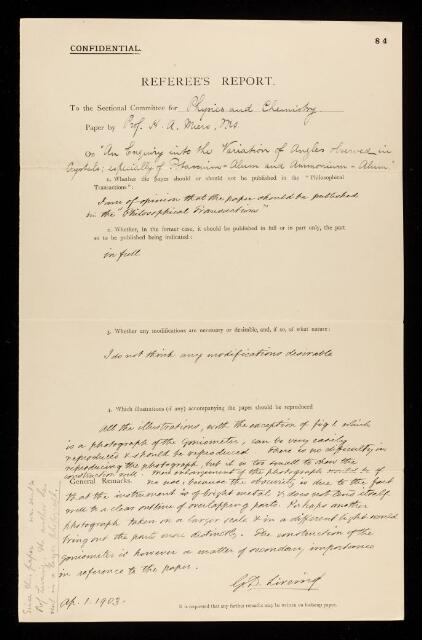 84
CONFIDENTIAL.
REFEREE'S REPORT.
To the Sectional Committee for Physics and Chemistry.
Paper by Prof. H. A. Miers, FRS
On "An Enquiry into the Variation of Angles observed in
Crystals; especially of Potassium-Alum and Ammonium-Alum"
1. Whether the paper should or should not be published in the "Philosophical
Transactions":
I am of opinion that the paper should be published
in the "Philosophical Transactions"
2. Whether, in the former case, it should be published in full or in part only, the part
not to be published being indicated:
in full
3. Whether any modifications are necessary or desirable, and, if so, of what nature:
I do not think any modifications desirable
4. Which illustrations (if any) accompanying the paper should be reproduced
All the illustrations, with the exception of fig 1 which
is a photograph of the Goniometer, can be very easily
reproduced & should be reproduced. There is no difficulty in
reproducing the photograph, but it is too small to show the
construction well. Mere enlargement of the photograph would be of
General Remarks. no use, because the obscurity is due to the fact
that the instrument is of bright metal & does not lend itself
well to a clear outline of overlapping parts. Perhaps another
photograph taken on a larger scale & in a different light would
bring out the parts more distinctly. The construction of the
goniometer is however a matter of secondary importance
in reference to the paper.
G. D. Liveing
Ap. 1. 1903.
It is requested that any further remarks may be written on foolscap paper.